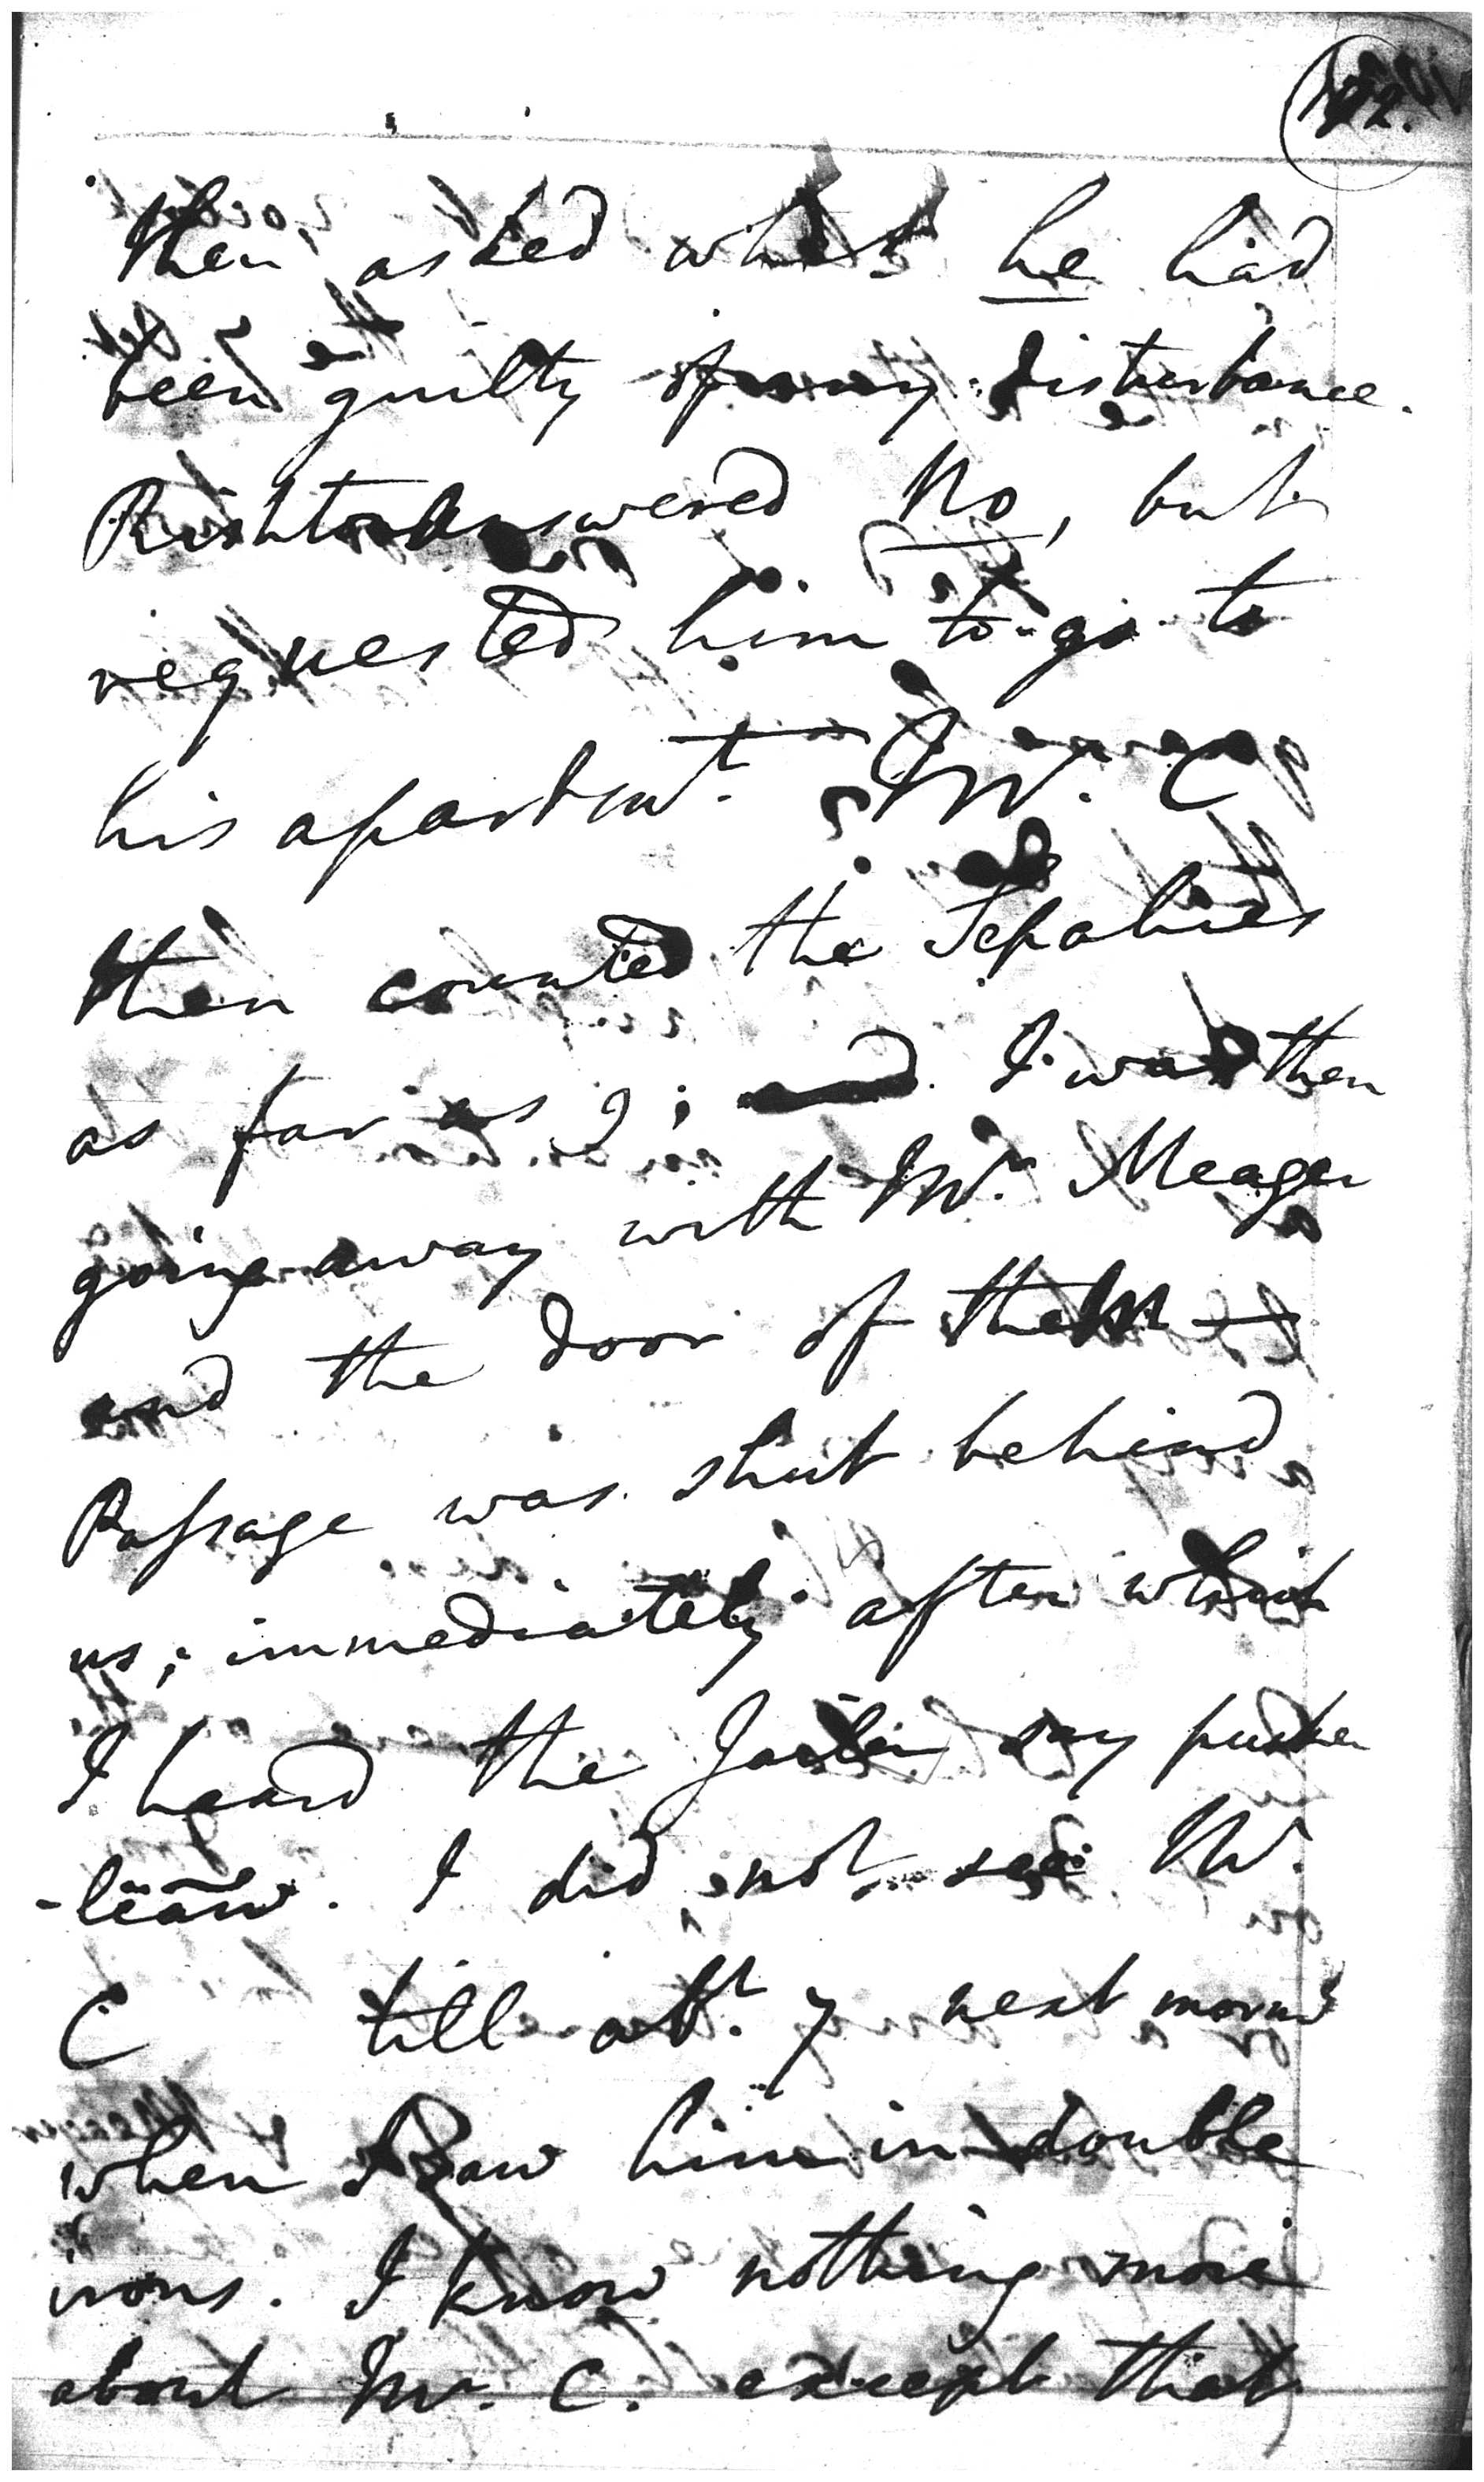 then asked what he had
been guilty of any disturbance.
Rishton answered No, but
requested him to go to
his apartmt. Mr. C
then counted the Sepahies
as far as 9; I was then
going away with Mr. Meager
and the door of the
Passage was shut behind
us; immediately after which
I heard the Jailer say
I did not see Mr.
C till abt. 7 next morng
when I saw him in double
irons. I know nothing more
about Mr. C. except that